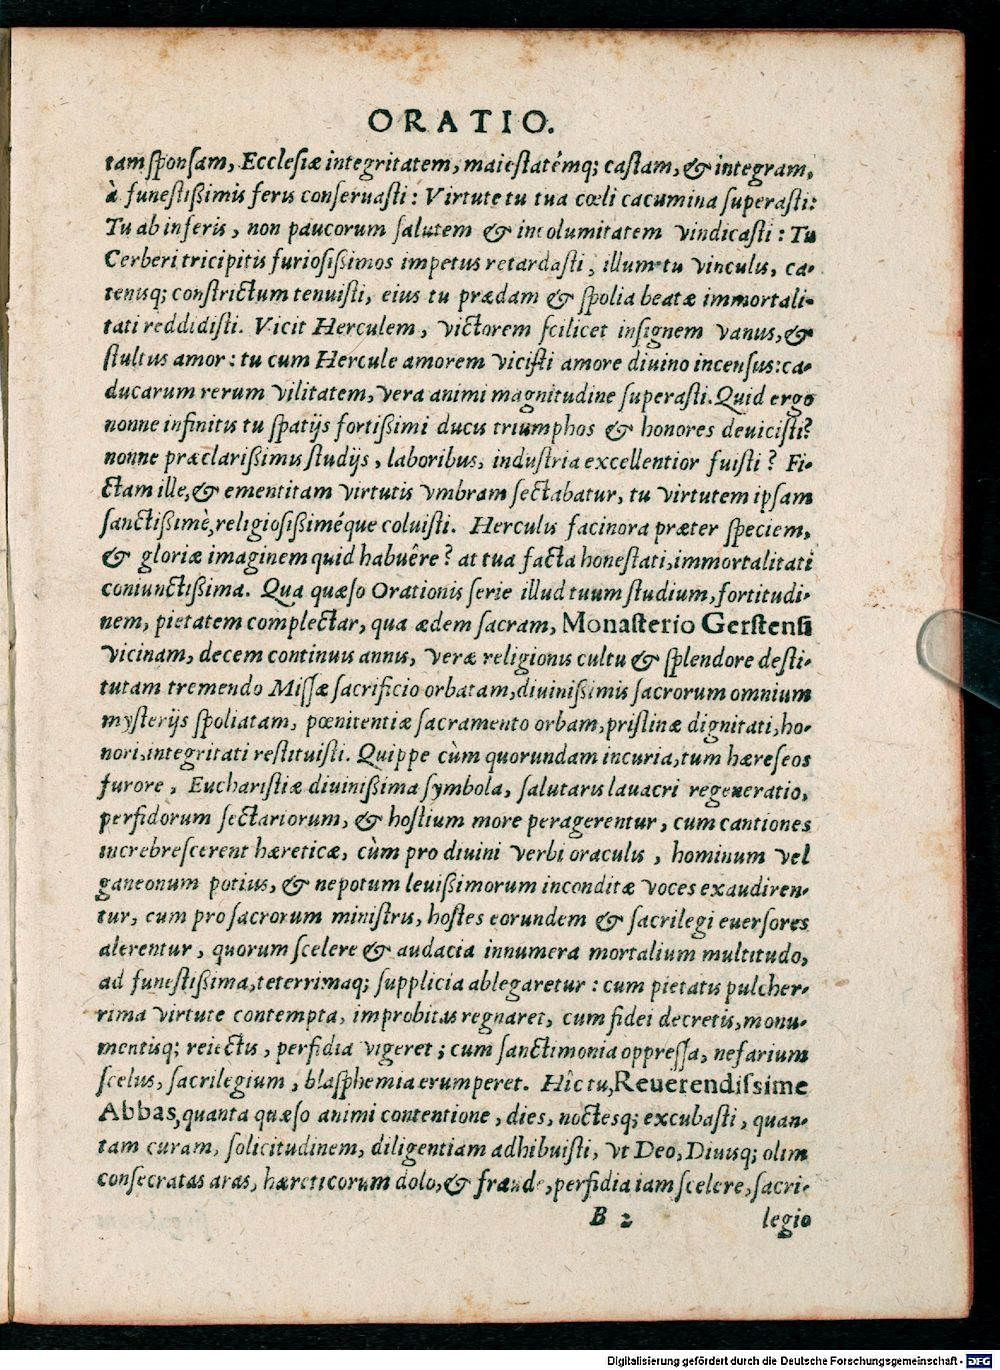 ORATIO.
tam sponsam, Ecclesiæ integritatem, maiestatémq; castam, & integram,
à funestißimis feris conseruasti: Virtute tu tua cœli cacumina superasti:
Tu ab inferis, non paucorum salutem & incolumitatem vindicasti: Tu
Cerberi tricipitis furiosißimos impetus retardasti, illum tu vinculis, ca-
tenisq; constrictum tenuisti, eius tu prædam & spolia beatæ immortali-
tati reddidisti. Vicit Herculem, victorem scilicet insignem vanus, &
stultus amor: tu cum Hercule amorem vicisti amore diuino incensus: ca-
ducarum rerum vilitatem, vera animi magnitudine superasti. Quid ergo
nonne infinitis tu spatijs fortißimi ducis triumphos & honores deuicisti?
nonne præclarißimis studijs, laboribus, industria excellentior fuisti? Fi-
ctam ille, & ementitam virtutis vmbram sectabatur, tu virtutem ipsam
sanctißimè, religiosißiméque coluisti. Herculis facinora præter speciem,
& gloriæ imaginem quid habuêre? at tua facta honestati, immortalitati
coniunctißima. Qua quæso Orationis serie illud tuum studium, fortitudi-
nem, pietatem complectar, qua ædem sacram, Monasterio Gerstensi
vicinam, decem continuis annis, veræ religionis cultu & splendore desti-
tutam tremendo Missæ sacrificio orbatam, diuinißimis sacrorum omnium
mysterijs spoliatam, pœnitentiæ sacramento orbam, pristinæ dignitati, ho-
nori, integritati restituisti. Quippe cùm quorundam incuria, tum hæreseos
furore, Eucharistiæ diuinißima symbola, salutaris lauacri regeneratio,
perfidorum sectariorum, & hostium more peragerentur, cum cantiones
increbrescerent hæreticæ, cùm pro diuini verbi oraculis, hominum vel
ganeonum potius, & nepotum leuißimorum inconditæ voces exaudiren-
tur, cum pro sacrorum ministris, hostes eorundem & sacrilegi euersores
alerentur, quorum scelere & audacia innumera mortalium multitudo,
ad funestißima, teterrimaq; supplicia ablegaretur: cum pietatis pulcher-
rima virtute contempta, improbitas regnaret, cum fidei decretis, monu-
mentisq; reiectis, perfidia vigeret; cum sanctimonia oppressa, nefarium
scelus, sacrilegium, blasphemia erumperet. Hîc tu, Reuerendissime
Abbas, quanta quæso animi contentione, dies, noctesq; excubasti, quan-
tam curam, solicitudinem, diligentiam adhibuisti, vt Deo, Diuisq; olim
consecratas aras, hæreticorum dolo, & fraude, perfidia iam scelere, sacri-
B 2 legio
Digitalisierung gefördert durch die Deutsche Forschungsgemeinschaft - DFG